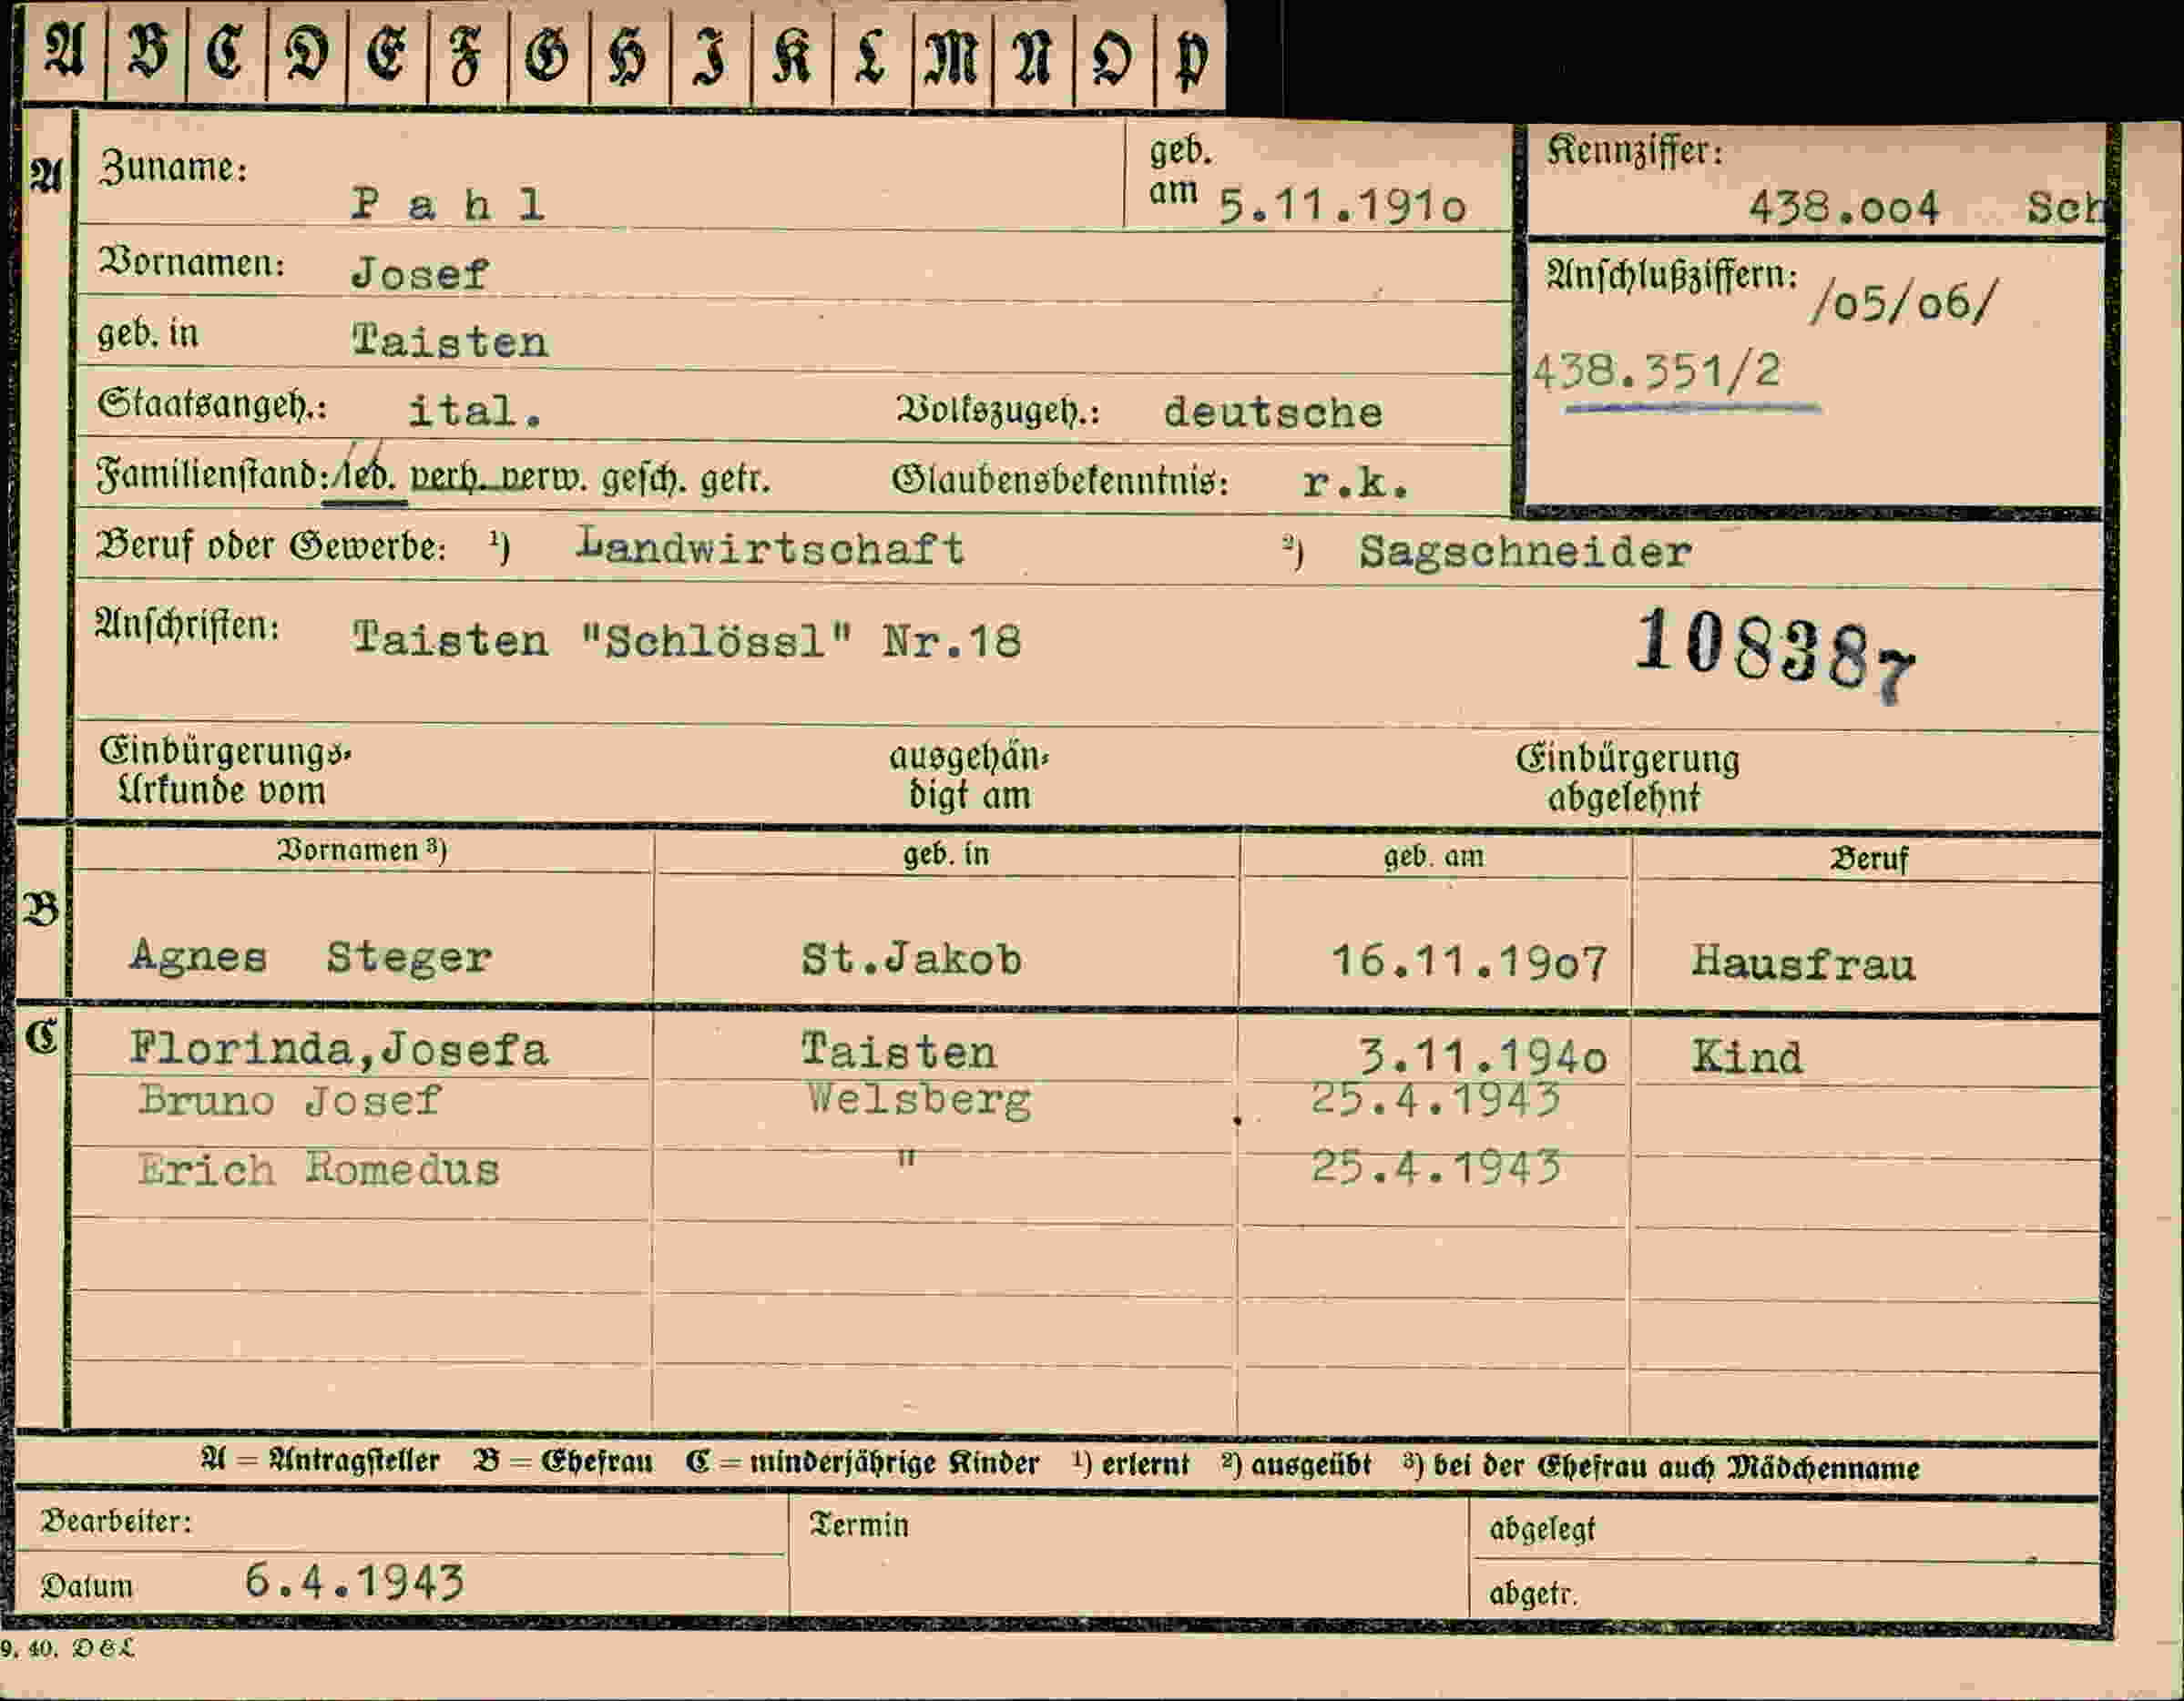 A B C D E F G H I K L M N O P
A Zuname: P a h l geb. am 5.11.191o
Kennziffer: 438.oo4 Sch
Vornamen: Josef
Anschlußziffern: /o5/o6/
438.351/2
geb. in Taisten
Staatsangeh.: ital. Volkszugeh.: deutsche
Familienstand: led. verh. verw. gesch. getr. Glaubensbekenntnis: r.k.
Beruf oder Gewerbe: ¹) Landwirtschaft ²) Sagschneider
Anschriften: Taisten "Schlössl" Nr.18 108387
Einbürgerungs- ausgehän- Einbürgerung
Urkunde vom digt am abgelehnt
Vornamen ³) geb. in geb. am Beruf
B Agnes Steger St.Jakob 16.11.19o7 Hausfrau
C Florinda,Josefa Taisten 3.11.194o Kind
Bruno Josef Welsberg 25.4.1943
Erich Romedus " 25.4.1943
A = Antragsteller B = Ehefrau C = minderjährige Kinder ¹) erlernt ²) ausgeübt ³) bei der Ehefrau auch Mädchenname
Bearbeiter: Termin abgelegt
Datum 6.4.1943 abgetr.
9. 40. D&L